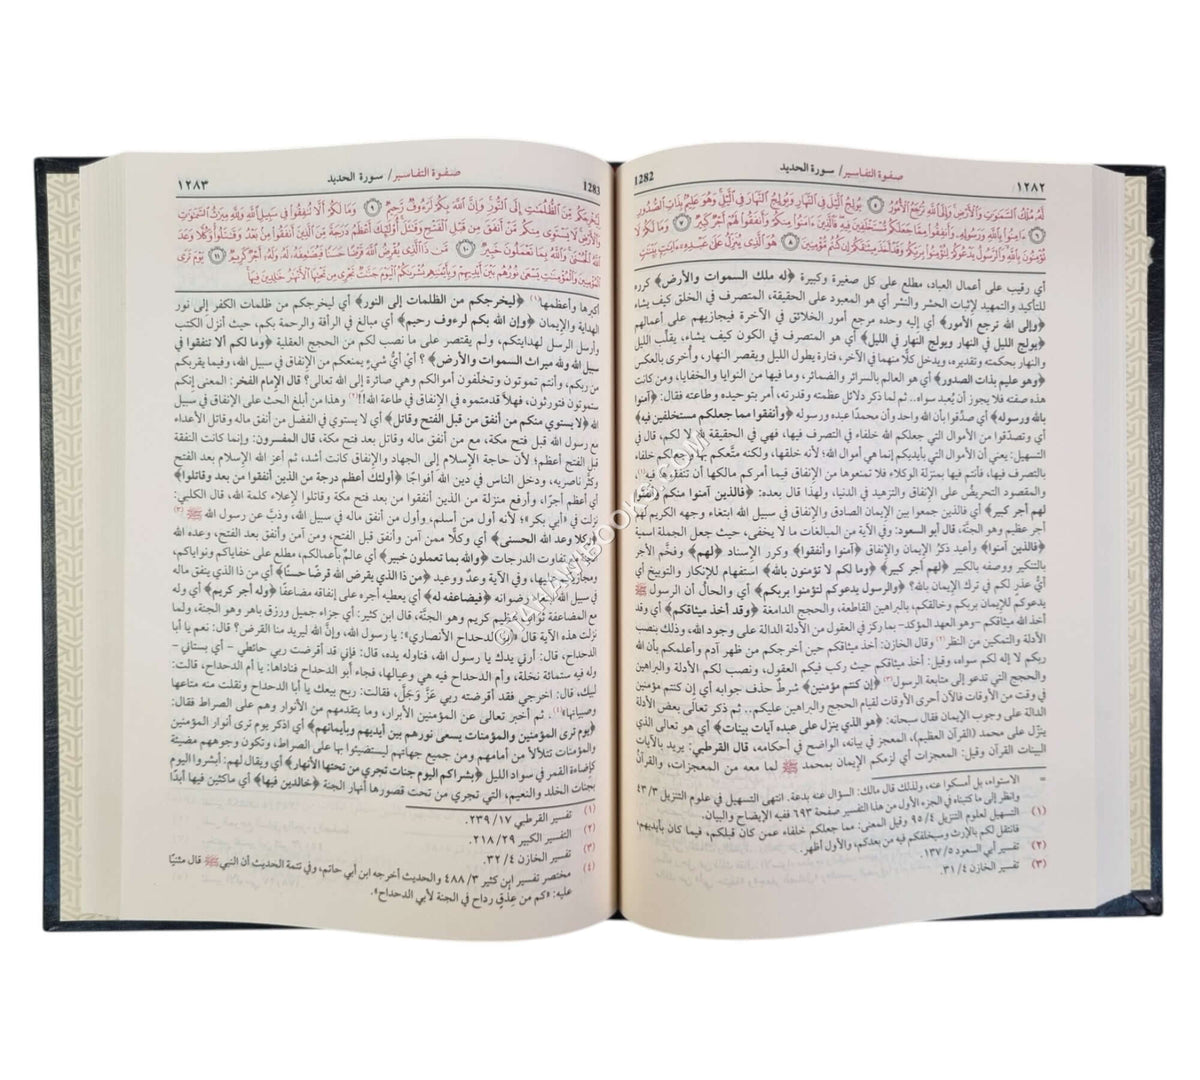 ١٢٨٢
صفوة التفاسير / سورة الحديد
1282
لَهُ مُلْكُ السَّمَاوَاتِ وَالْأَرْضِ وَإِلَى اللَّهِ تُرْجَعُ الْأُمُورُ ٥ يُولِجُ اللَّيْلَ فِي النَّهَارِ وَيُولِجُ النَّهَارَ فِي اللَّيْلِ وَهُوَ عَلِيمٌ بِذَاتِ الصُّدُورِ
٦ ءَامِنُوا بِاللَّهِ وَرَسُولِهِ وَأَنفِقُوا مِمَّا جَعَلَكُم مُّسْتَخْلَفِينَ فِيهِ فَالَّذِينَ ءَامَنُوا مِنكُمْ وَأَنفَقُوا لَهُمْ أَجْرٌ كَبِيرٌ ٧ وَمَا لَكُمْ لَا
تُؤْمِنُونَ بِاللَّهِ وَالرَّسُولُ يَدْعُوكُمْ لِتُؤْمِنُوا بِرَبِّكُمْ وَقَدْ أَخَذَ مِيثَاقَكُمْ إِن كُنتُم مُّؤْمِنِينَ ٨ هُوَ الَّذِي يُنَزِّلُ عَلَى عَبْدِهِ ءَايَاتٍ بَيِّنَاتٍ
أي رقيب على أعمال العباد، مطلع على كل صغيرة وكبيرة ﴿له ملك السموات والأرض﴾ كرره
للتأكيد والتمهيد لإثبات الحشر والنشر أي هو المعبود على الحقيقة، المتصرف في الخلق كيف يشاء
﴿وإلى الله ترجع الأمور﴾ أي إليه وحده مرجع أمور الخلائق في الآخرة فيجازيهم على أعمالهم
﴿يولج الليل في النهار ويولج النهار في الليل﴾ أي هو المتصرف في الكون كيف يشاء، يقلّب الليل
والنهار بحكمته وتقديره، ويدخل كلًّا منهما في الآخر، فتارة يطول الليل ويقصر النهار، وأخرى بالعكس
﴿وهو عليم بذات الصدور﴾ أي هو العالم بالسرائر والضمائر، وما فيها من النوايا والخفايا، ومن كانت
هذه صفته فلا يجوز أن يُعبد سواه.. ثم لما ذكر دلائل عظمته وقدرته، أمر بتوحيده وطاعته فقال: ﴿آمنوا
بالله ورسوله﴾ أي صدّقوا بأن الله واحد وأن محمدًا عبده ورسوله ﴿وأنفقوا مما جعلكم مستخلفين فيه﴾
أي وتصدّقوا من الأموال التي جعلكم الله خلفاء في التصرف فيها، فهي في الحقيقة لله لا لكم، قال في
التسهيل: يعني أن الأموال التي بأيديكم إنما هي أموال الله؛ لأنه خلقها، ولكنه متّعكم بها وجعلكم خلفاء
بالتصرف فيها، فأنتم فيها بمنزلة الوكلاء فلا تمنعوها من الإنفاق فيما أمركم مالكها أن تنفقوها فيه(١)
والمقصود التحريض على الإنفاق والتزهيد في الدنيا، ولهذا قال بعده: ﴿فالذين آمنوا منكم وأنفقوا
لهم أجر كبير﴾ أي فالذين جمعوا بين الإيمان الصادق والإنفاق في سبيل الله ابتغاء وجهه الكريم لهم
أجر عظيم وهو الجنّة، قال أبو السعود: وفي الآية من المبالغات ما لا يخفى، حيث جعل الجملة اسمية
﴿فالذين آمنوا﴾ وأعيد ذكرُ الإيمان والإنفاق ﴿آمنوا وأنفقوا﴾ وكرر الإسناد ﴿لهم﴾ وفخّم الأجر
بالتنكير ووصفه بالكبير ﴿لهم أجر كبير﴾(٢) ﴿وما لكم لا تؤمنون بالله﴾ استفهام للإنكار والتوبيخ أي
أيُّ عذرٍ لكم في ترك الإيمان بالله؟ ﴿والرسول يدعوكم لتؤمنوا بربكم﴾ أي والحالُ أن الرسول ﷺ
يدعوكم للإيمان بربكم وخالقكم، بالبراهين القاطعة، والحجج الدامغة ﴿وقد أخذ ميثاقكم﴾ أي وقد
أخذ الله ميثاقكم - وهو العهد المؤكد- بما ركز في العقول من الأدلة الدالة على وجود الله، وذلك بنصب
الأدلة والتمكين من النظر(٢) وقال الخازن: أخذ ميثاقكم حين أخرجكم من ظهر آدم وأعلمكم بأن الله
ربكم لا إله لكم سواه، وقيل: أخذ ميثاقكم حيث ركب فيكم العقول، ونصب لكم الأدلة والبراهين
والحجج التي تدعو إلى متابعة الرسول(٣) ﴿إن كنتم مؤمنين﴾ شرطٌ حذف جوابه أي إن كنتم مؤمنين
في وقت من الأوقات فالآن أحرى الأوقات لقيام الحجج والبراهين عليكم.. ثم ذكر تعالى بعض الأدلة
الدالة على وجوب الإيمان فقال سبحانه: ﴿هو الذي ينزل على عبده آيات بينات﴾ أي هو تعالى الذي
ينزّل على محمد (القرآن العظيم)، المعجز في بيانه، الواضح في أحكامه، قال القرطبي: يريد بالآيات
البينات القرآن وقيل: المعجزات أي لزمكم الإيمان بمحمد ﷺ لما معه من المعجزات، والقرآن
= الاستواء، بل أمسكوا عنه، ولذلك قال مالك: السؤال عنه بدعة. انتهى التسهيل في علوم التنزيل ٣/ ٤٣
وانظر إلى ما كتبناه في الجزء الأول من هذا التفسير صفحة ٦٩٣ ففيه الإيضاح والبيان.
(١) التسهيل لعلوم التنزيل ٤/ ٩٥ وقيل المعنى: مما جعلكم خلفاء عمن كان قبلكم، فيما كان بأيديهم،
فانتقل لكم بالإرث وسيخلفكم فيه من بعدكم، والأول أظهر.
(٢) تفسير أبي السعود ٥/ ١٣٧.
(٣) تفسير الخازن ٤/ ٣١.
1283
صفوة التفاسير / سورة الحديد
١٢٨٣
لِيُخْرِجَكُم مِّنَ الظُّلُمَاتِ إِلَى النُّورِ وَإِنَّ اللَّهَ بِكُمْ لَرَءُوفٌ رَّحِيمٌ ٩ وَمَا لَكُمْ أَلَّا تُنفِقُوا فِي سَبِيلِ اللَّهِ وَلِلَّهِ مِيرَاثُ السَّمَاوَاتِ
وَالْأَرْضِ لَا يَسْتَوِي مِنكُم مَّنْ أَنفَقَ مِن قَبْلِ الْفَتْحِ وَقَاتَلَ أُولَئِكَ أَعْظَمُ دَرَجَةً مِّنَ الَّذِينَ أَنفَقُوا مِن بَعْدُ وَقَاتَلُوا وَكُلًّا وَعَدَ
اللَّهُ الْحُسْنَى وَاللَّهُ بِمَا تَعْمَلُونَ خَبِيرٌ ١٠ مَّن ذَا الَّذِي يُقْرِضُ اللَّهَ قَرْضًا حَسَنًا فَيُضَاعِفَهُ لَهُ وَلَهُ أَجْرٌ كَرِيمٌ ١١ يَوْمَ تَرَى
الْمُؤْمِنِينَ وَالْمُؤْمِنَاتِ يَسْعَى نُورُهُم بَيْنَ أَيْدِيهِمْ وَبِأَيْمَانِهِم بُشْرَاكُمُ الْيَوْمَ جَنَّاتٌ تَجْرِي مِن تَحْتِهَا الْأَنْهَارُ خَالِدِينَ فِيهَا
أكبرها وأعظمها(١) ﴿ليخرجكم من الظلمات إلى النور﴾ أي ليخرجكم من ظلمات الكفر إلى نور
الهداية والإيمان ﴿وإن الله بكم لرءوف رحيم﴾ أي مبالغ في الرأفة والرحمة بكم، حيث أنزل الكتب
وأرسل الرسل لهدايتكم، ولم يقتصر على ما نصب لكم من الحجج العقلية ﴿وما لكم ألا تنفقوا في
سبيل الله ولله ميراث السموات والأرض﴾؟ أي أيُّ شيءٍ يمنعكم من الإنفاق في سبيل الله، وفيما يقربكم
من ربكم، وأنتم تموتون وتخلّفون أموالكم وهي صائرة إلى الله تعالى؟ قال الإمام الفخر: المعنى إنكم
ستموتون فتورثون، فهلاَّ قدمتموه في الإنفاق في طاعة الله!!(٢) وهذا من أبلغ الحث على الإنفاق في سبيل
الله ﴿لا يستوي منكم من أنفق من قبل الفتح وقاتل﴾ أي لا يستوي في الفضل من أنفق ماله وقاتل الأعداء
مع رسول الله قبل فتح مكة، مع من أنفق ماله وقاتل بعد فتح مكة، قال المفسرون: وإنما كانت النفقة
قبل الفتح أعظم؛ لأن حاجة الإسلام إلى الجهاد والإنفاق كانت أشد، ثم أعز الله الإسلام بعد الفتح
وكثّر ناصريه، ودخل الناس في دين الله أفواجًا ﴿أولئك أعظم درجة من الذين أنفقوا من بعد وقاتلوا﴾
أي أعظم أجرًا، وأرفع منزلة من الذين أنفقوا من بعد فتح مكة وقاتلوا لإعلاء كلمة الله، قال الكلبي:
نزلت في «أبي بكر»؛ لأنه أول من أسلم، وأول من أنفق ماله في سبيل الله، وذبّ عن رسول الله ﷺ(٣)
﴿وكلًّا وعد الله الحسنى﴾ أي وكلًّا ممن آمن وأنفق قبل الفتح، ومن آمن وأنفق بعد الفتح، وعده الله
مع تفاوت الدرجات ﴿والله بما تعملون خبير﴾ أي عالمٌ بأعمالكم، مطلع على خفاياكم ونواياكم،
ومجازيكم عليها، وفي الآية وعدٌ ووعيد ﴿من ذا الذي يقرض الله قرضًا حسنًا﴾ أي من ذا الذي ينفق ماله
في سبيل الله ورضوانه ﴿فيضاعفه له﴾ أي يعطيه أجره على إنفاقه مضاعفًا ﴿وله أجر كريم﴾ أي وله
مع المضاعفة ثواب عظيم كريم وهو الجنّة، قال ابن كثير: أي جزاء جميل ورزق باهر وهو الجنة، ولما
نزلت هذه الآية قال «أبو الدحداح الأنصاري»: يا رسول الله، وإنَّ الله ليريد منا القرض؟ قال: نعم يا أبا
الدحداح، قال: أرني يدك يا رسول الله، فناوله يده، قال: فإني قد أقرضت ربي حائطي - أي بستاني -
وله فيه ستمائة نخلة، وأم الدحداح فيه هي وعيالها، فجاء أبو الدحداح فناداها: يا أم الدحداح، قالت:
لبيك، قال: اخرجي فقد أقرضته ربي عَزَّ وَجَلَّ، فقالت: ربح بيعك يا أبا الدحداح ونقلت منه متاعها
وصبيانها»(٤)، ثم أخبر تعالى عن المؤمنين الأبرار، وما يتقدمهم من الأنوار وهم على الصراط فقال:
﴿يوم ترى المؤمنين والمؤمنات يسعى نورهم بين أيديهم وبأيمانهم﴾ أي اذكر يوم ترى أنوار المؤمنين
والمؤمنات تتلألأ من أمامهم ومن جميع جهاتهم ليستضيئوا بها على الصراط، وتكون وجوههم مضيئة
كإضاءة القمر في سواد الليل ﴿بشراكم اليوم جنات تجري من تحتها الأنهار﴾ أي ويقال لهم: أبشروا اليوم
بجنات الخلد والنعيم، التي تجري من تحت قصورها أنهار الجنة ﴿خالدين فيها﴾ أي ماكثين فيها أبدًا
(١) تفسير القرطبي ١٧/ ٢٣٩.
(٢) التفسير الكبير ٢٩/ ٢١٨.
(٣) تفسير الخازن ٤/ ٣٢.
(٤) مختصر تفسير ابن كثير ٣/ ٤٨٨ والحديث أخرجه ابن أبي حاتم، وفي تتمة الحديث أن النبي ﷺ قال مثنيًا
عليه: «كم من عِذقٍ رداح في الجنة لأبي الدحداح».